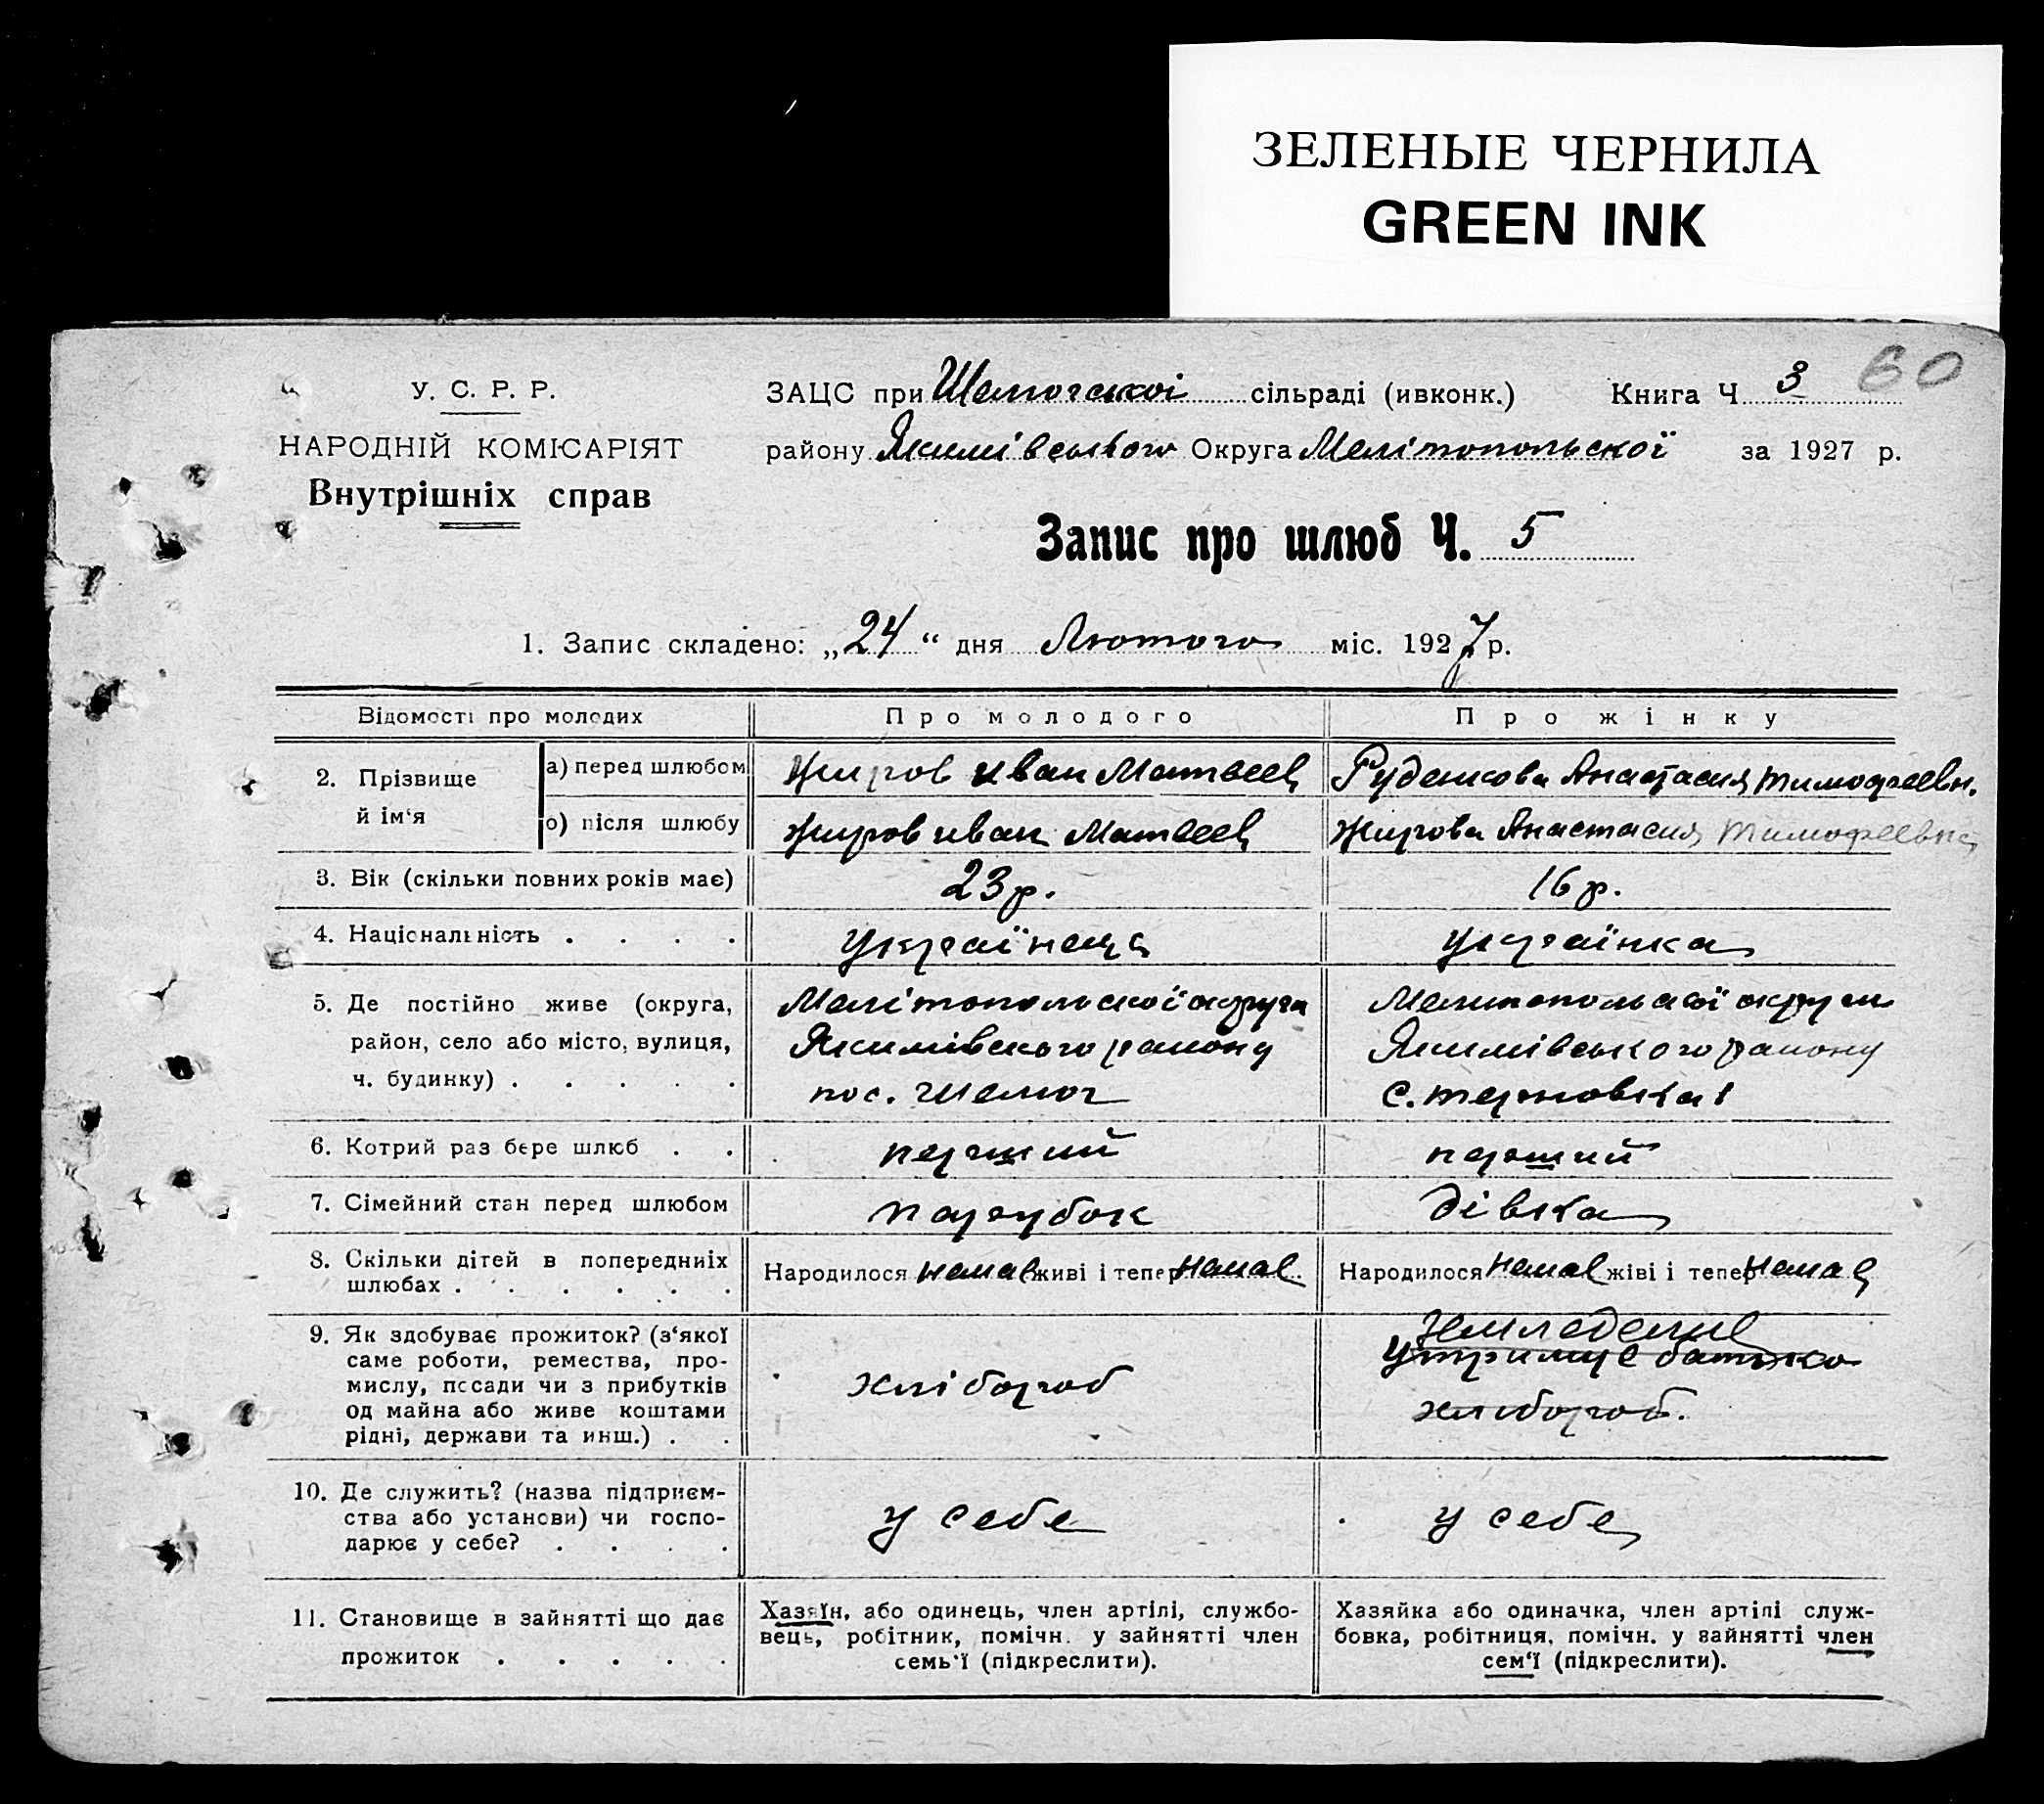 ЗЕЛЕНЫЕ ЧЕРНИЛА
GREEN INK
60
У. С. Р. Р.
НАРОДНІЙ КОМІСАРІЯТ
Внутрішніх справ
ЗАЦС при Шемогської сільраді (ивконк.) Книга Ч 3
району Якимівського Округа Мелітопольскої за 1927 р.
Запис про шлюб Ч. 5
1. Запис складено: „24“ дня Лютого міс. 1927 р.
Відомості про молодих Про молодого Про жінку
2. Прізвище й ім‘я
а) перед шлюбом Жиров Иван Матвеев Руденкова Анастасия Тимофеевн.
о) після шлюбу Жиров иван Матвеев Жирова Анастасия Тимофеевна
3. Вік (скільки повних років має) 23 р. 16 р.
4. Національність . . . . українець українка
5. Де постійно живе (округа, Мелітопольскої округи Мелитопольскої округи
район, село або місто, вулиця, Якимівского району Якимівського району
ч. будинку) . . . . . пос. Шемог с. терновка
6. Котрий раз бере шлюб . . перший перший
7. Сімейний стан перед шлюбом парубок дівка
8. Скільки дітей в попередниіх Народилося немає живі і тепер немає Народилося немає жіві і тепер немає
шлюбах . . . . . .
9. Як здобуває прожиток? (з‘якої
саме роботи, ремества, про-
мислу, посади чи з прибутків
од майна або живе коштами
рідні, держави та инш.) . .
хлібороб
утримує батько
хлибороб.
10. Де служить? (назва підприєм-
ства або установи) чи госпо-
дарює у себе? . . . .
у себе у себе
11. Становище в зайнятті що дає
прожиток . . . . .
Хазяїн, або одинець, член артілі, службо-
вець, робітник, помічн. у зайнятті член
семь‘ї (підкреслити).
Хазяйка або одиначка, член артілі служ-
бовка, робітниця, помічн. у зайнятті член
сем‘ї (підкреслити).